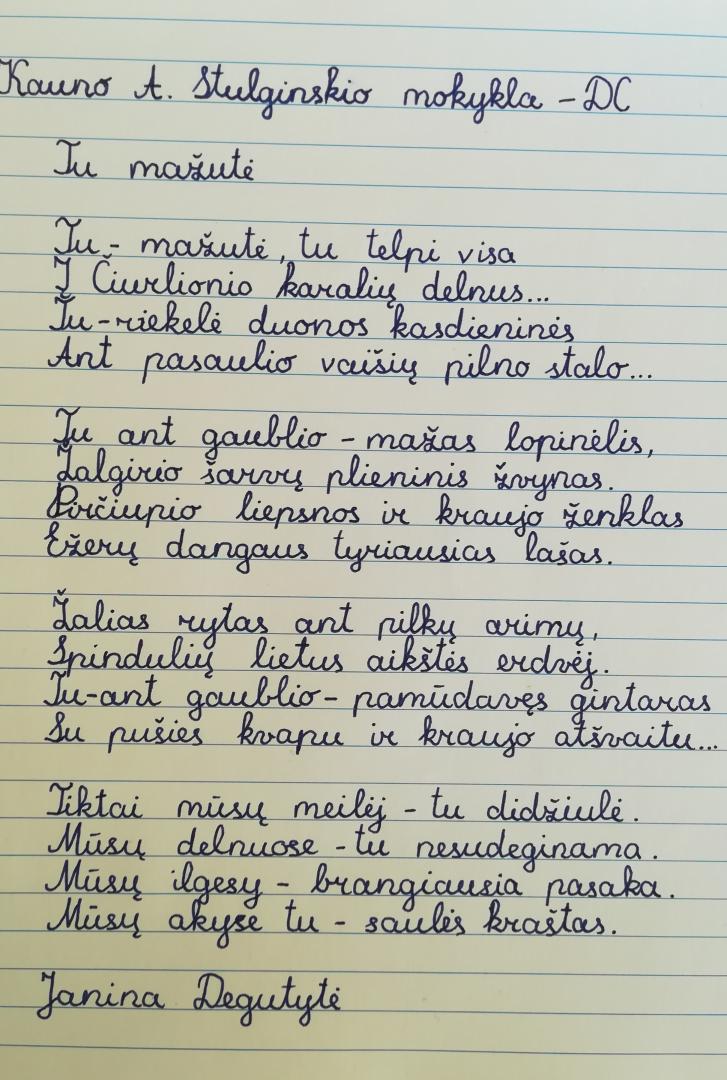 Kauno A. Stulginskio mokykla – DC
Tu mažutė
Tu - mažutė, tu telpi visa
Į Čiurlionio karalių delnus...
Tu - riekelė duonos kasdieninės
Ant pasaulio vaišių pilno stalo...
Tu ant gaublio - mažas lopinėlis,
Žalgirio šarvų plieninis žvynas.
Pirčiupio liepsnos ir kraujo ženklas
Ežerų dangaus tyriausias lašas.
Žalias rytas ant pilkų arimų,
Spindulių lietus aikštės erdvėj.
Tu - ant gaublio - pamūdavęs gintaras
Su pušies kvapu ir kraujo atšvaitu...
Tiktai mūsų meilėj - tu didžiulė.
Mūsų delnuose - tu nesudeginama.
Mūsų ilgesy - brangiausia pasaka.
Mūsų akyse tu - saulės kraštas.
Janina Degutytė